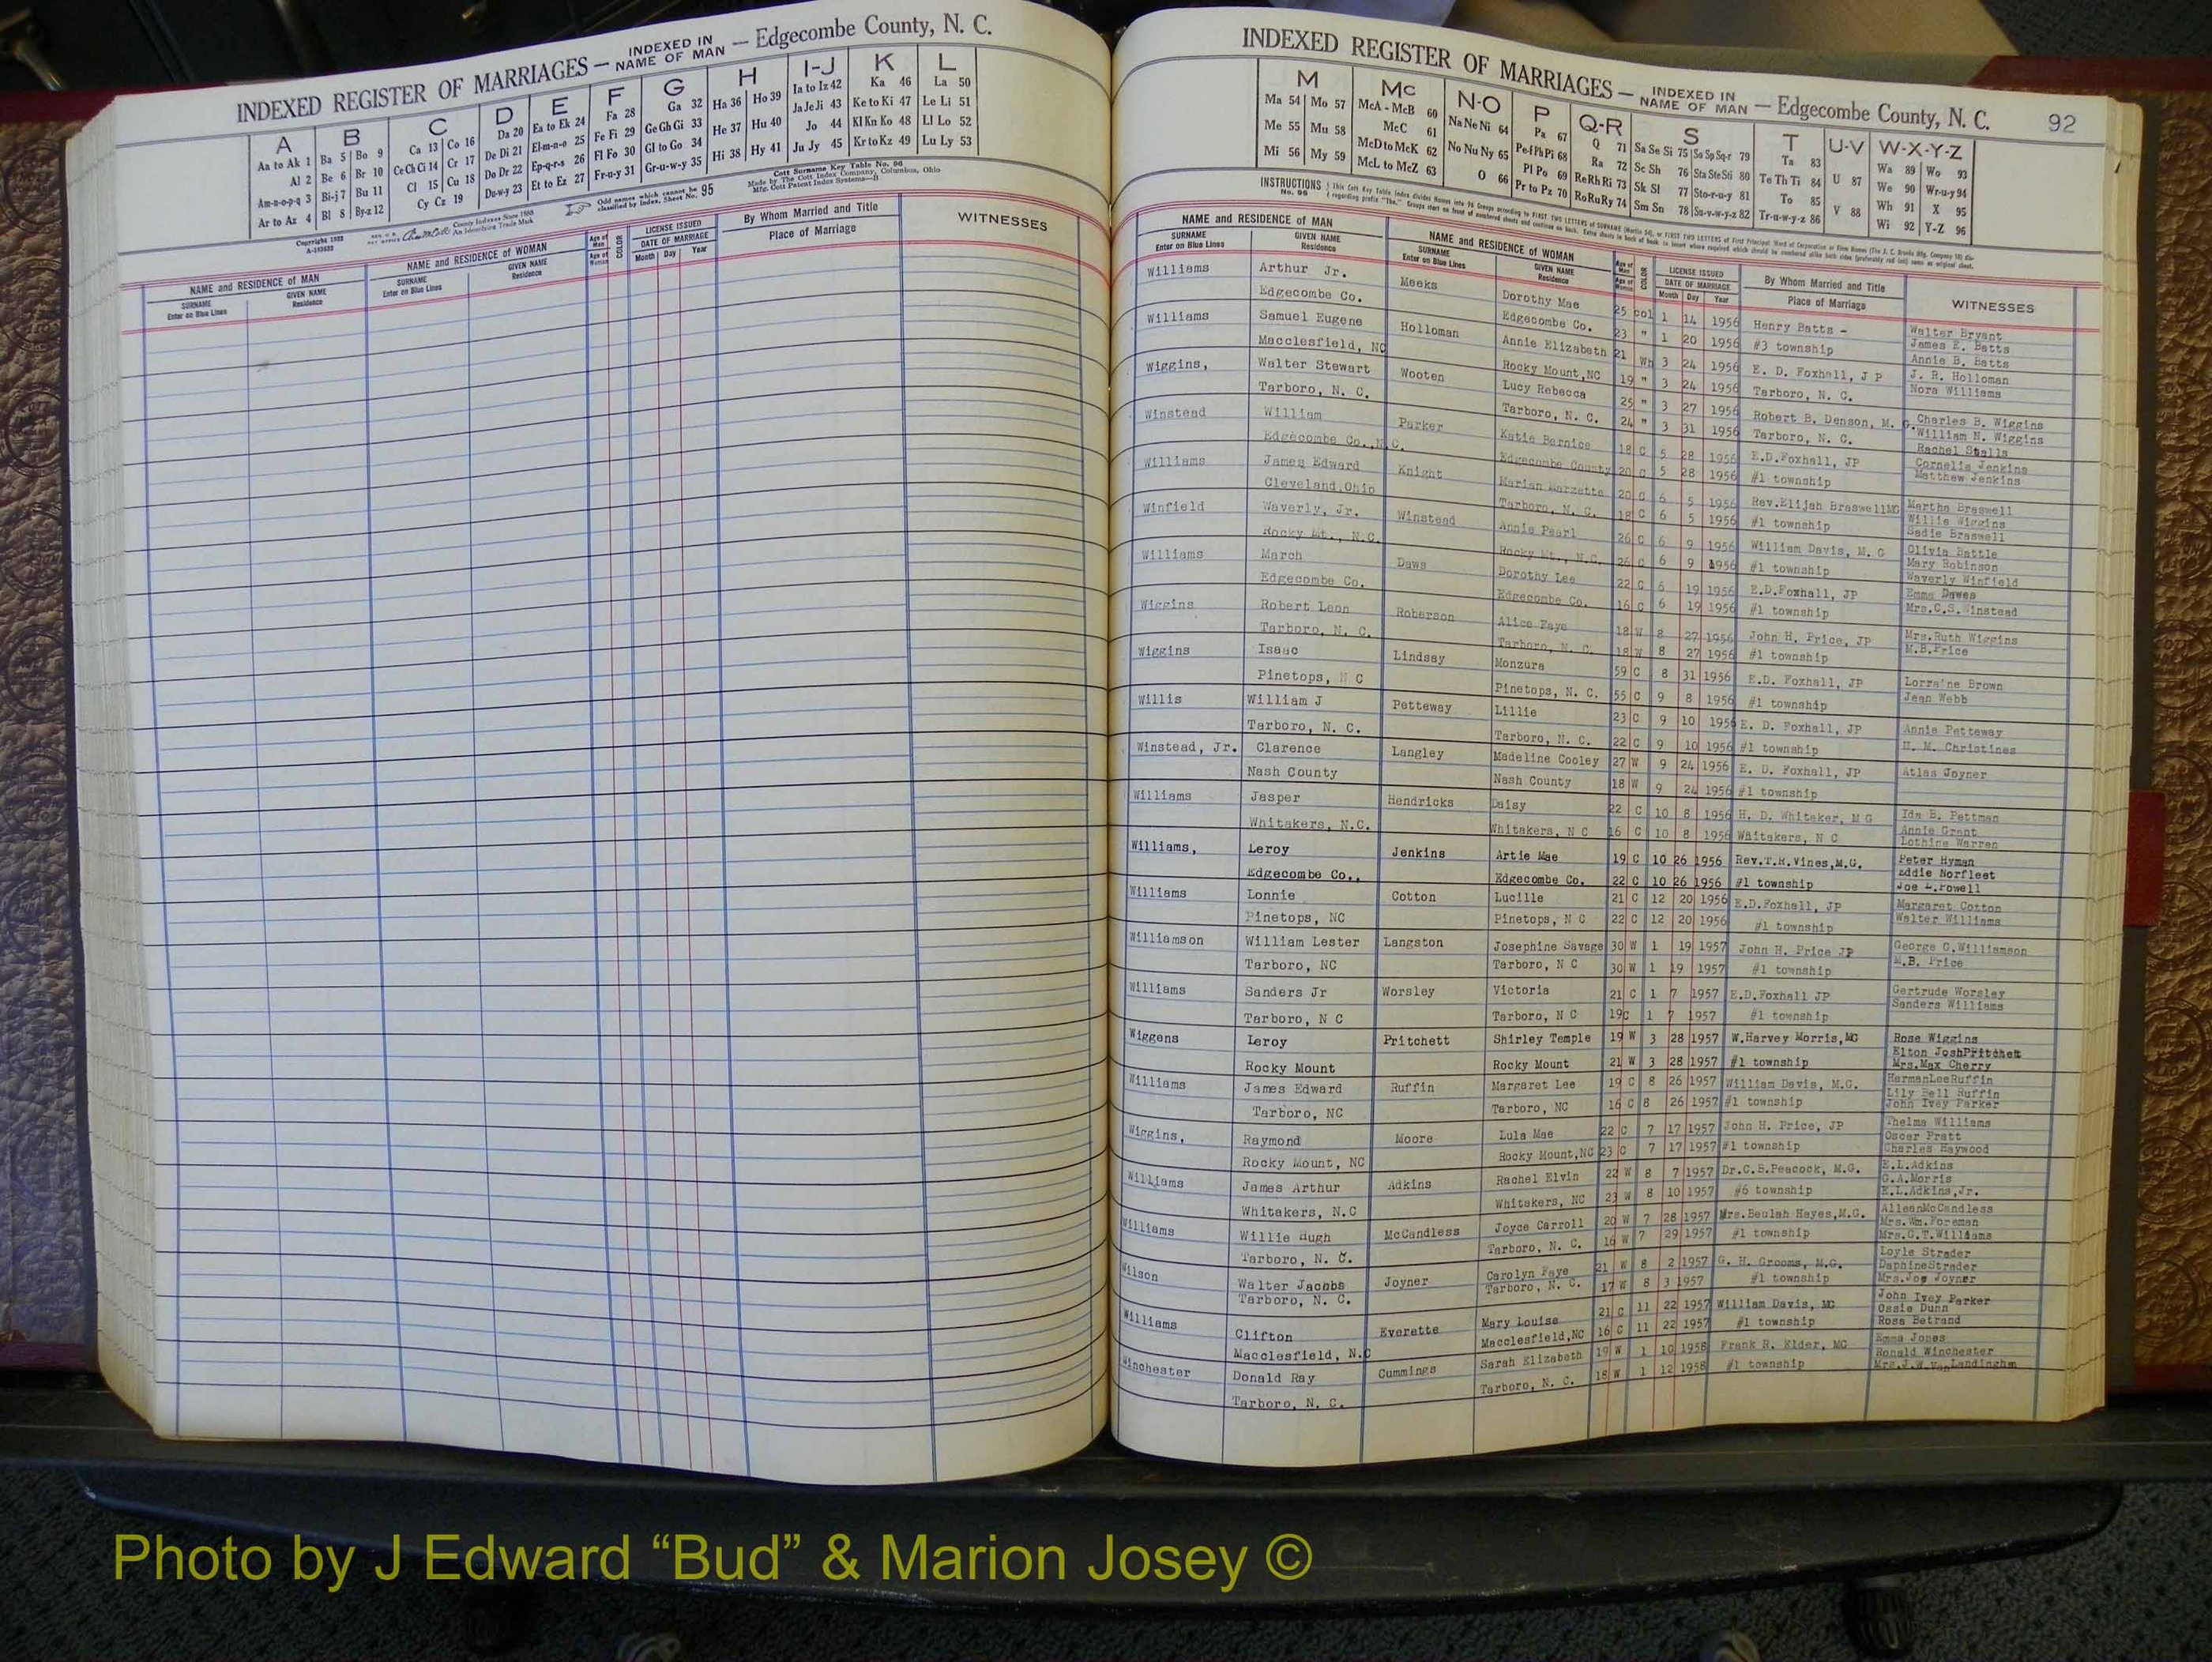 INDEXED REGISTER OF MARRIAGES — INDEXED IN NAME OF MAN — Edgecombe County, N. C.
A B C D E F G H I-J K L
Aa to Ak 1 Ba 5 Bo 9 Ca 13 Co 16 Da 20 Ea to Ek 24 Fa 28 Ga 32 Ha 36 Ho 39 Ia to Iz 42 Ka 46 La 50
Al 2 Be 6 Br 10 Ce Ch Ci 14 Cr 17 De Di 21 El-m-n-o 25 Fe Fi 29 Ge Gh Gi 33 He 37 Hu 40 Ja Je Ji 43 Ke to Ki 47 Le Li 51
Am-n-o-p-q 3 Bi-j 7 Bu 11 Cl 15 Cu 18 Do Dr 22 Ep-q-r-s 26 Fl Fo 30 Gl to Go 34 Hi 38 Hy 41 Jo 44 Kl Kn Ko 48 Ll Lo 52
Ar to Az 4 Bl 8 By-z 12 Cy Cz 19 Du-w-y 23 Et to Ez 27 Fr-u-y 31 Gr-u-w-y 35 Ju Jy 45 Kr to Kz 49 Lu Ly 53
Odd names which cannot be classified by Index, Sheet No. 95
Cott Surname Key Table No. 96
Made by The Cott Index Company, Columbus, Ohio
NAME and RESIDENCE OF MAN NAME and RESIDENCE OF WOMAN Age of Man Age of Woman COLOR LICENSE ISSUED DATE OF MARRIAGE By Whom Married and Title Place of Marriage WITNESSES
SURNAME Enter on Blue Lines GIVEN NAME Residence SURNAME Enter on Blue Lines GIVEN NAME Residence Month Day Year
INDEXED REGISTER OF MARRIAGES — INDEXED IN NAME OF MAN — Edgecombe County, N. C. 92
M Mc N-O P Q-R S T U-V W-X-Y-Z
Ma 54 Mo 57 McA - McB 60 Na Ne Ni 64 Pa 67 Q 71 Sa Se Si 75 So Sp Sq-r 79 Ta 83 U 87 Wa 89 Wo 93
Me 55 Mu 58 McC 61 No Nu Ny 65 Pe-f Ph Pi 68 Ra 72 Sc Sh 76 Sta Ste Sti 80 Te Th Ti 84 V 88 We 90 Wr-u-y 94
Mi 56 My 59 McD to McK 62 O 66 Pl Po 69 Re Rh Ri 73 Sk Sl 77 Sto-r-u-y 81 To 85 Wh 91 X 95
McL to McZ 63 Pr to Pz 70 Ro Ru Ry 74 Sm Sn 78 Su-v-w-y-z 82 Tr-u-w-y-z 86 Wi 92 Y-Z 96
NAME and RESIDENCE OF MAN NAME and RESIDENCE OF WOMAN Age of Man Age of Woman COLOR LICENSE ISSUED DATE OF MARRIAGE By Whom Married and Title Place of Marriage WITNESSES
SURNAME Enter on Blue Lines GIVEN NAME Residence SURNAME Enter on Blue Lines GIVEN NAME Residence Month Day Year
Williams Arthur Jr. Meeks Dorothy Mae 25 col 1 14 1956 Henry Batts - Walter Bryant
Edgecombe Co. Edgecombe Co. 23 " 1 20 1956 #3 township James E. Batts
Annie B. Batts
Williams Samuel Eugene Holloman Annie Elizabeth 21 Wh 3 24 1956 E. D. Foxhall, J P J. R. Holloman
Macclesfield, NC Rocky Mount,NC 19 " 3 24 1956 Tarboro, N. C. Nora Williams
Wiggins, Walter Stewart Wooten Lucy Rebecca 25 " 3 27 1956 Robert B. Denson, M. G. Charles B. Wiggins
Tarboro, N. C. Tarboro, N. C. 24 " 3 31 1956 Tarboro, N. C. William N. Wiggins
Rachel Stalls
Winstead William Parker Katie Bernice 18 C 5 28 1956 E.D.Foxhall, JP Cornelia Jenkins
Edgecombe Co.,N.C. Edgecombe County 20 C 5 28 1956 #1 township Matthew Jenkins
Williams James Edward Knight Marian Marzette 20 C 6 5 1956 Rev.Elijah BraswellMG Martha Braswell
Cleveland,Ohio Tarboro, N. C. 18 C 6 5 1956 #1 township Willie Wiggins
Sadie Braswell
Winfield Waverly, Jr. Winstead Annie Pearl 26 C 6 9 1956 William Davis, M. G Olivia Battle
Rocky Mt., N.C. Rocky Mt., N.C. 26 C 6 9 1956 #1 township Mary Robinson
Waverly Winfield
Williams March Daws Dorothy Lee 22 C 6 19 1956 E.D.Foxhall, JP Emma Dawes
Edgecombe Co. Edgecombe Co. 16 C 6 19 1956 #1 township Mrs.C.S.Winstead
Wiggins Robert Leon Roberson Alice Faye 18 W 8 27 1956 John H. Price, JP Mrs.Ruth Wiggins
Tarboro, N. C. Tarboro, N. C. 18 W 8 27 1956 #1 township M.B.Price
Wiggins Isaac Lindsay Monzura 59 C 8 31 1956 E.D. Foxhall, JP Lorraine Brown
Pinetops, N C Pinetops, N. C. 55 C 9 8 1956 #1 township Jean Webb
Willis William J Petteway Lillie 23 C 9 10 1956 E. D. Foxhall, JP Annie Petteway
Tarboro, N. C. Tarboro, N. C. 22 C 9 10 1956 #1 township H. M. Christines
Winstead, Jr. Clarence Langley Madeline Cooley 27 W 9 24 1956 E. D. Foxhall, JP Atlas Joyner
Nash County Nash County 18 W 9 24 1956 #1 township
Williams Jasper Hendricks Daisy 22 C 10 8 1956 H. D. Whitaker, M G Ida B. Pettman
Whitakers, N.C. Whitakers, N C 16 C 10 8 1956 Whitakers, N C Annie Grant
Lothine Warren
Williams, Leroy Jenkins Artie Mae 19 C 10 26 1956 Rev.T.R.Vines,M.G. Peter Hyman
Edgecombe Co., Edgecombe Co. 22 C 10 26 1956 #1 township Eddie Norfleet
Joe L.Powell
Williams Lonnie Cotton Lucille 21 C 12 20 1956 E.D.Foxhall, JP Margaret Cotton
Pinetops, NC Pinetops, N C 22 C 12 20 1956 #1 township Walter Williams
Williamson William Lester Langston Josephine Savage 30 W 1 19 1957 John H. Price JP George G.Williamson
Tarboro, NC Tarboro, N C 30 W 1 19 1957 #1 township M.B. Price
Williams Sanders Jr Worsley Victoria 21 C 1 7 1957 E.D.Foxhall JP Gertrude Worsley
Tarboro, N C Tarboro, N C 19C 1 7 1957 #1 township Sanders Williams
Wiggens Leroy Pritchett Shirley Temple 19 W 3 28 1957 W.Harvey Morris,MG Rose Wiggins
Rocky Mount Rocky Mount 21 W 3 28 1957 #1 township Elton JoshPritchet
Mrs.Max Cherry
Williams James Edward Ruffin Margaret Lee 19 C 8 26 1957 William Davis, M.G. HermanLeeRuffin
Tarboro, NC Tarboro, NC 16 C 8 26 1957 #1 township Lily Bell Ruffin
John Ivey Parker
Wiggins, Raymond Moore Lula Mae 22 C 7 17 1957 John H. Price, JP Thelma Williams
Rocky Mount, NC Rocky Mount,NC 23 C 7 17 1957 #1 township Oscar Pratt
Charles Haywood
Williams James Arthur Adkins Rachel Elvin 22 W 8 7 1957 Dr.C.B.Peacock, M.G. E.L.Adkins
Whitakers, N.C Whitakers, NC 23 W 8 10 1957 #6 township G.A.Morris
E.L.Adkins,Jr.
Williams Willie Hugh McCandless Joyce Carroll 20 W 7 28 1957 Mrs.Beulah Hayes,M.G. AlleanMcCandless
Tarboro, N. C. Tarboro, N. C. 16 W 7 29 1957 #1 township Mrs.Wm.Foreman
Mrs.C.T.Williams
Wilson Walter Jacobs Joyner Carolyn Faye 21 W 8 2 1957 G. H. Grooms, M.G. Loyle Strader
Tarboro, N. C. Tarboro, N. C. 17 W 8 3 1957 #1 township DaphineStrader
Mrs.Joe Joyner
Williams Clifton Everette Mary Louise 21 C 11 22 1957 William Davis, MG John Ivey Parker
Macclesfield, N.C Macclesfield,NC 16 C 11 22 1957 #1 township Ossie Dunn
Rosa Betrand
Winchester Donald Ray Cummings Sarah Elizabeth 19 W 1 10 1958 Frank R. Elder, MG Emma Jones
Tarboro, N. C. Tarboro, N. C. 18 W 1 12 1958 #1 township Ronald Winchester
Mrs.J.W.VanLandingham
Photo by J Edward “Bud” & Marion Josey ©